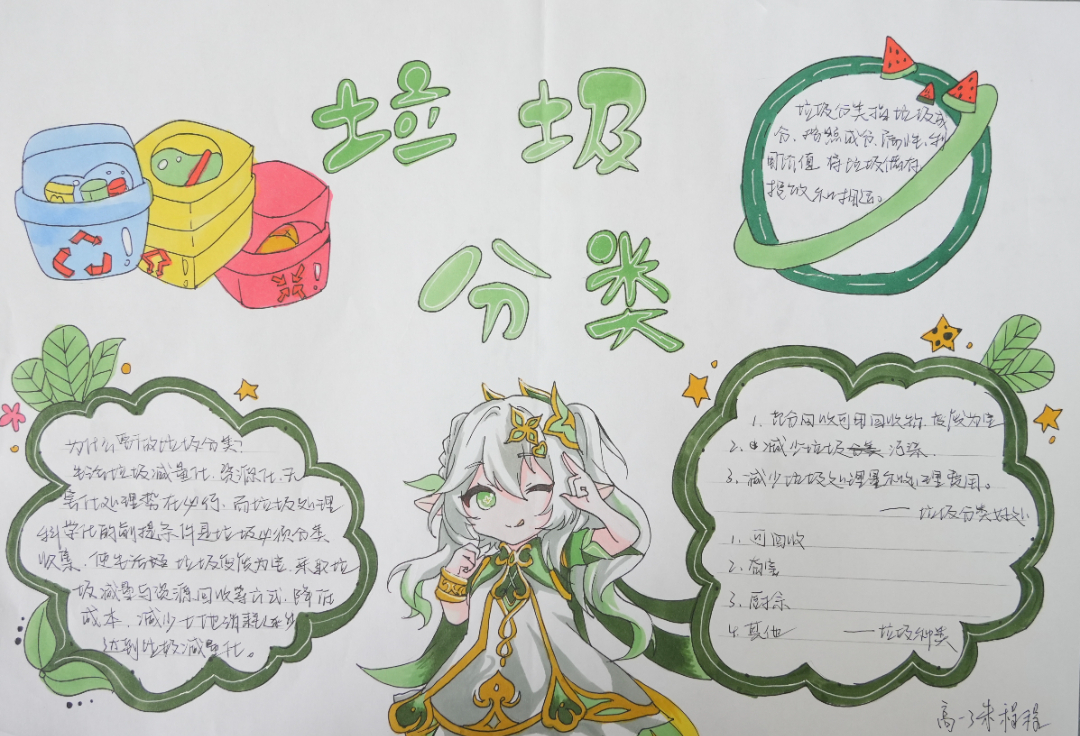 垃圾
分类
垃圾分类指垃圾成
分、按照成分、属性、利
用价值 将垃圾储存
投放和搬运。
为什么要放垃圾分类?
生活垃圾减量化、资源化、无
害化处理势在必行、而垃圾处理
科学化的前提条件是垃圾必须分类
收集、使生活 垃圾变废为宝、采取垃
圾减量与资源回收等方式、降低
成本、减少土地消耗
达到垃圾减量化。
1. 充分回收可用回收物,变废为宝
2. 减少垃圾 污染.
3. 减少垃圾处理量和处理费用。
—— 垃圾分类好处
1. 可回收
2. 有害
3. 厨余
4. 其他 —— 垃圾种类
高一3 朱程程